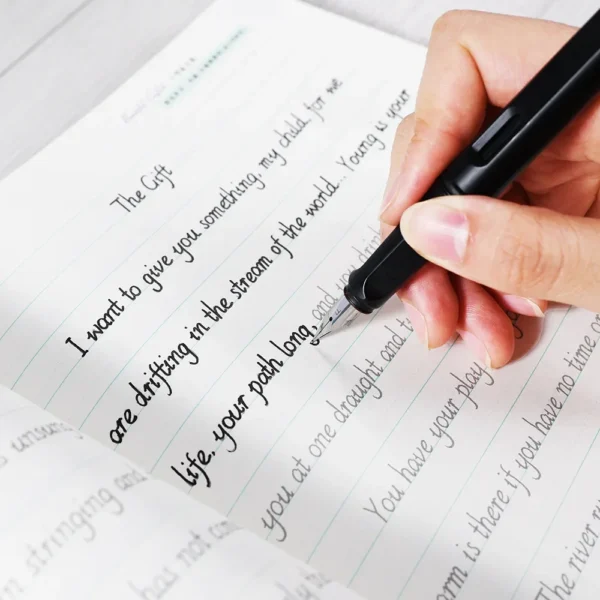 The Gift
I want to give you something, my child, for we
are drifting in the stream of the world. Young is your
life, your path long, and you drin
you at one draught and t
You have your play
orm is there if you have no time o
The river r
unsung
in stringing and
has not co